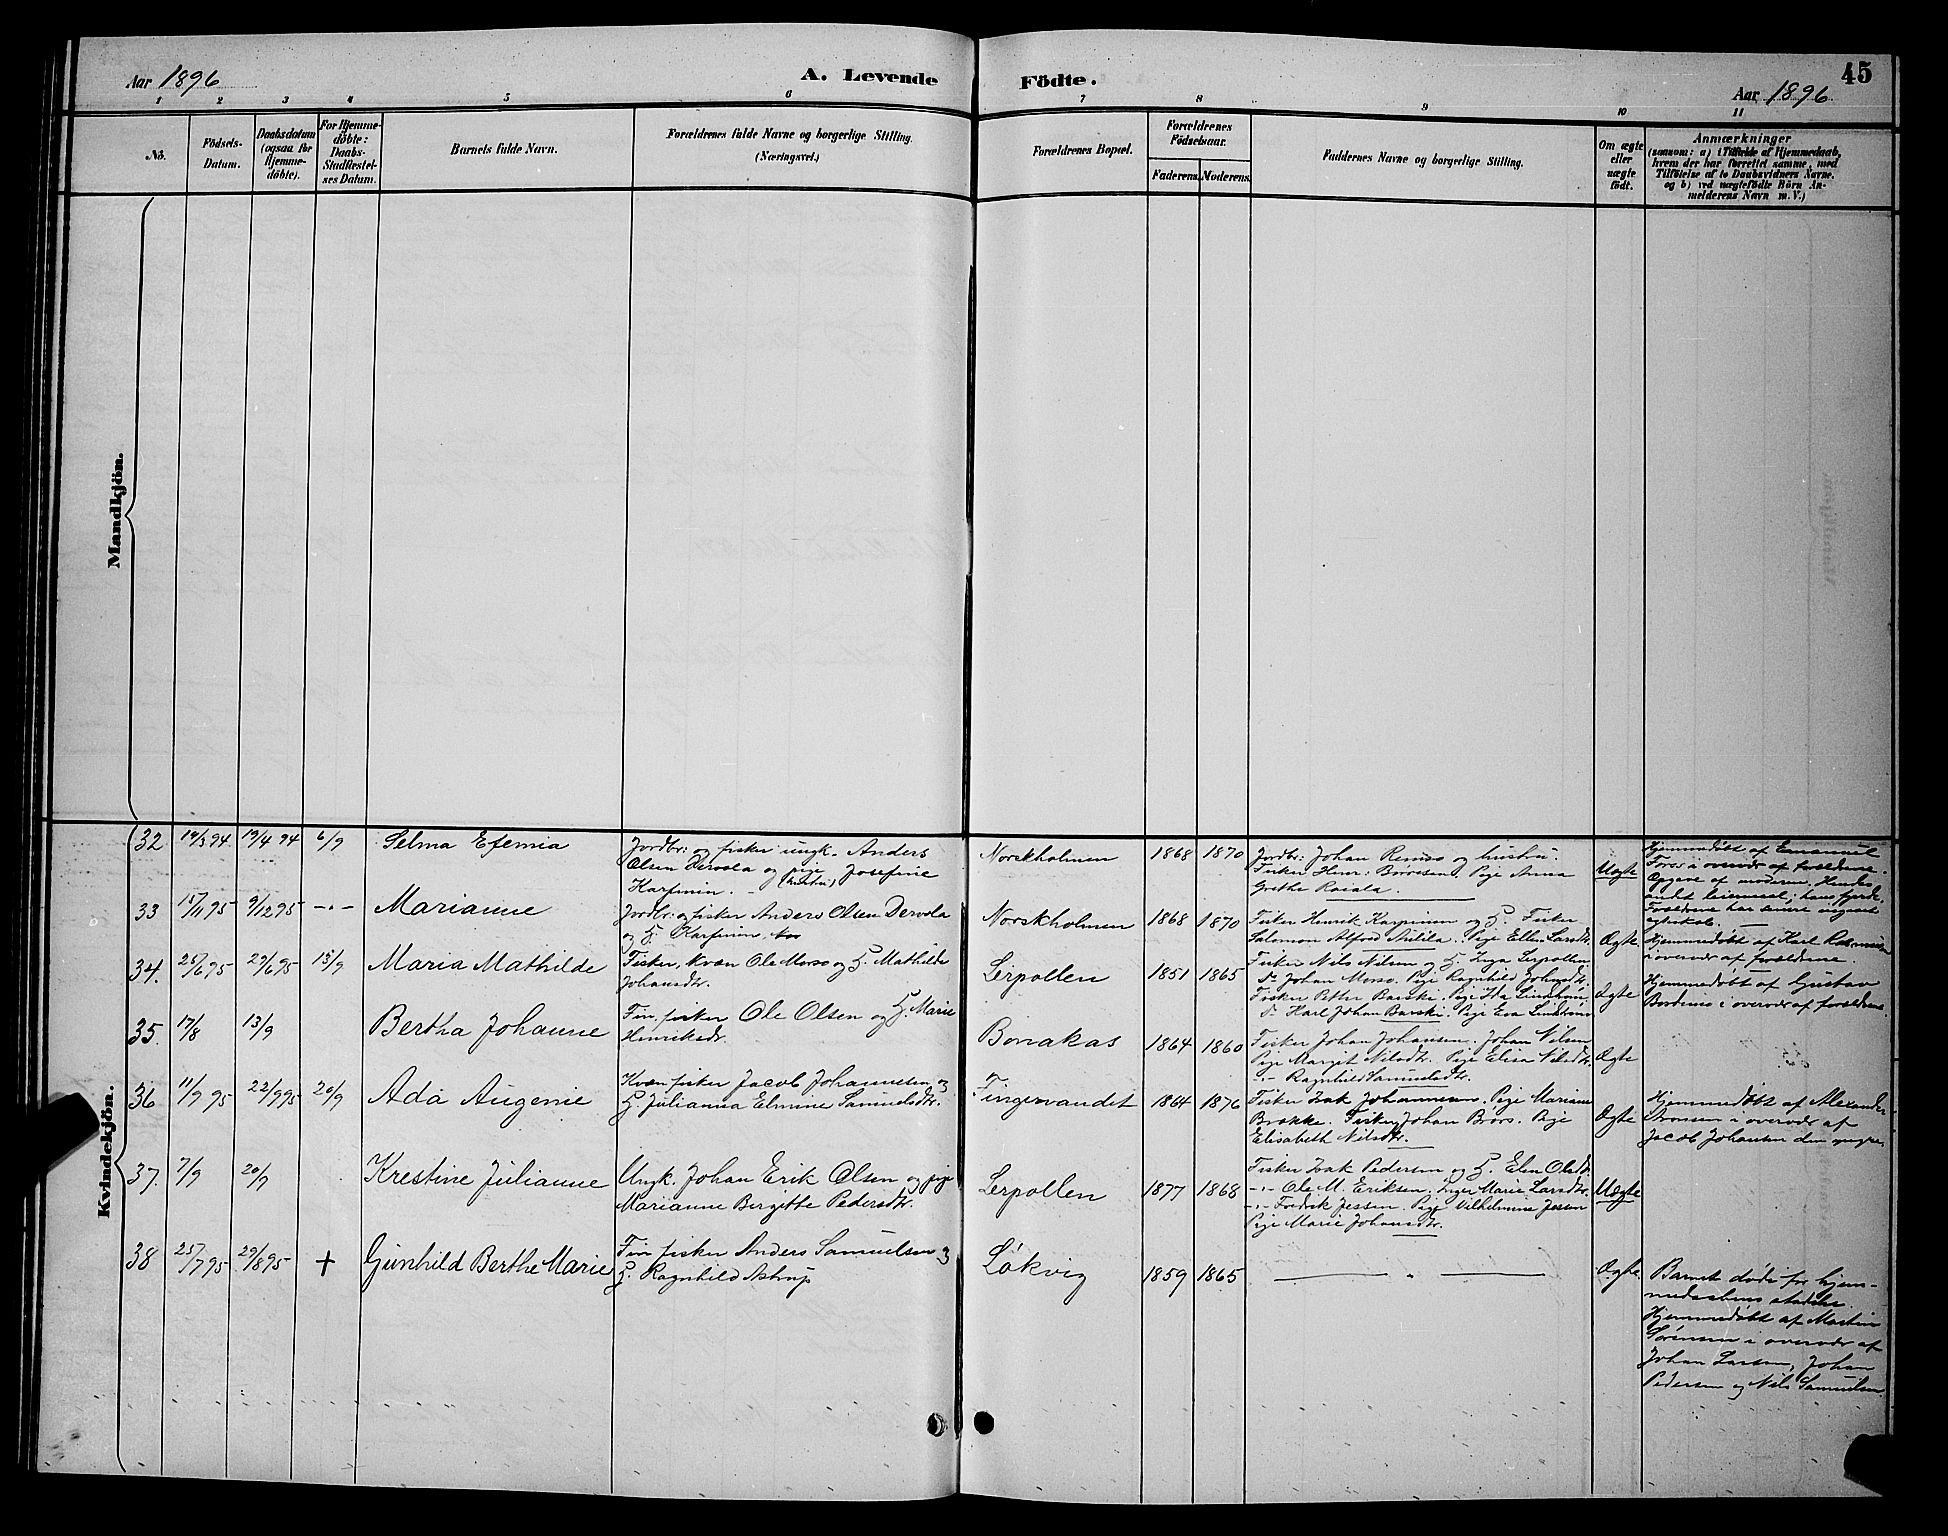 Aar 1896
A. Levende Födte.
Aar 1896
45
1 2 3 4 5 6 7 8 9 10 11
Nō.
Födsels-Datum.
Daabsdatum (ogsaa for Hjemme-döbte).
For Hjemme-döbte: Daabs-Stadfæstel-ses Datum.
Barnets fulde Navn.
Forældrenes fulde Navne og borgerlige Stilling. (Næringsvei.)
Forældrenes Bopæl.
Forældrenes Födselsaar.
Faderens. Moderens.
Faddernes Navne og borgerlige Stilling.
Om ægte eller uægte födt.
Anmærkninger
(saasom: a) i Tilfælde af Hjemmedaab, hvem der har forrettet samme, med Tilföielse af to Daabsvidners Navne. og b) ved uægtefödte Börn An-melderens Navn m. V.)
Mandkjön.
Kvindekjön.
32 19/3 94 19/4 94 6/9 Selma Efemia
Jordbr: og fisker ungk. Anders
Olsen Dervola og pige Josefine
(hustru)
Karfinin.
Norskholmen 1868 1870
Jordbr: Johan og hustru.
Fisker Henr: Børresen. Pige Anna
Grethe
Uægte
Hjemmedøbt af Emanuel
i overvær af forældrene.
Opgave af moderen. Hendes
leiermaal, hans fjerde.
Forældrene har senere
33 15/11 95 9/12 95 -"- Marianne
Jordbr: og fisker Anders Olsen Dervola
og H. Karfinin.
Norskholmen 1868 1870
Fisker Henrik Karfinin og H. Fisker
Salomon Alfred Pige Ellen Larsdtr.
Ægte
Hjemmedøbt af Karl
i overvær af forældrene.
34. 25/6 95 29/6 95 15/9 Maria Mathilde
Fisker, kvæn Ole Morso og H. Mathilde
Johansdtr.
Lerpollen 1851 1865
Fisker Nils Nilsen og H. Inga Lerpollen
do Johan Morso. Pige Ragnhild Johnsdtr.
Fisker Petter Barski. Pige Ida
do Karl Johan Barski. Pige Eva
Ægte
Hjemmedøbt af Gustav
i overvær af forældrene.
35. 17/8 13/9 Bertha Johanne
Fin, fisker Ole Olsen og H. Marie
Henriksdr.
Bonakas 1864 1860
Fisker Johan Johansen. Johan Nilsen
Pige Margit Nilsdtr. Pige Elisa Nilsdtr.
-"- Ragnhild Samuelsdtr.
Ægte
36 11/9 95 22/9 95 20/9 Ada Augenie
Kvæn fisker Jacob Johannesen og
H. Julianna Elmine Samuelsdtr.
Fingervandet 1864 1876
Fisker Isak Johannesen. Pige Mariane
Brakke. Fisker Johan Brørs. Pige
Elisabeth Nilsdtr.
Ægte
Hjemmedøbt af Alexander
i overvær af
Jacob Johansen den yngre.
37. 7/9 20/9 Krestine Julianne
Ungk. Johan Erik Olsen og pige
Marianne Birgitte Pedersdtr.
Lerpollen 1877 1868
Fisker Isak Pedersen og H. Elen Olsdtr.
-"- Ole M. Eriksen, Inger Marie Larsdtr.
-"- Fredrik Jessen. Pige Vilhelmine Jessen
Pige Marie Johansdtr.
Uægte
38 25/7 95 29/8 95 + Gunhild Berthe Marie
Fin, fisker Anders Samuelsen og
H. Ragnhild Astrup
Løkvig 1859 1865
— " —
Ægte.
Barnet døde før hjem-
medaabens stadfæ.
Hjemmedøbt af Martin
Sørensen i overvær af
Johan Larsen, Johan
Pedersen og Nils Samuelsen.